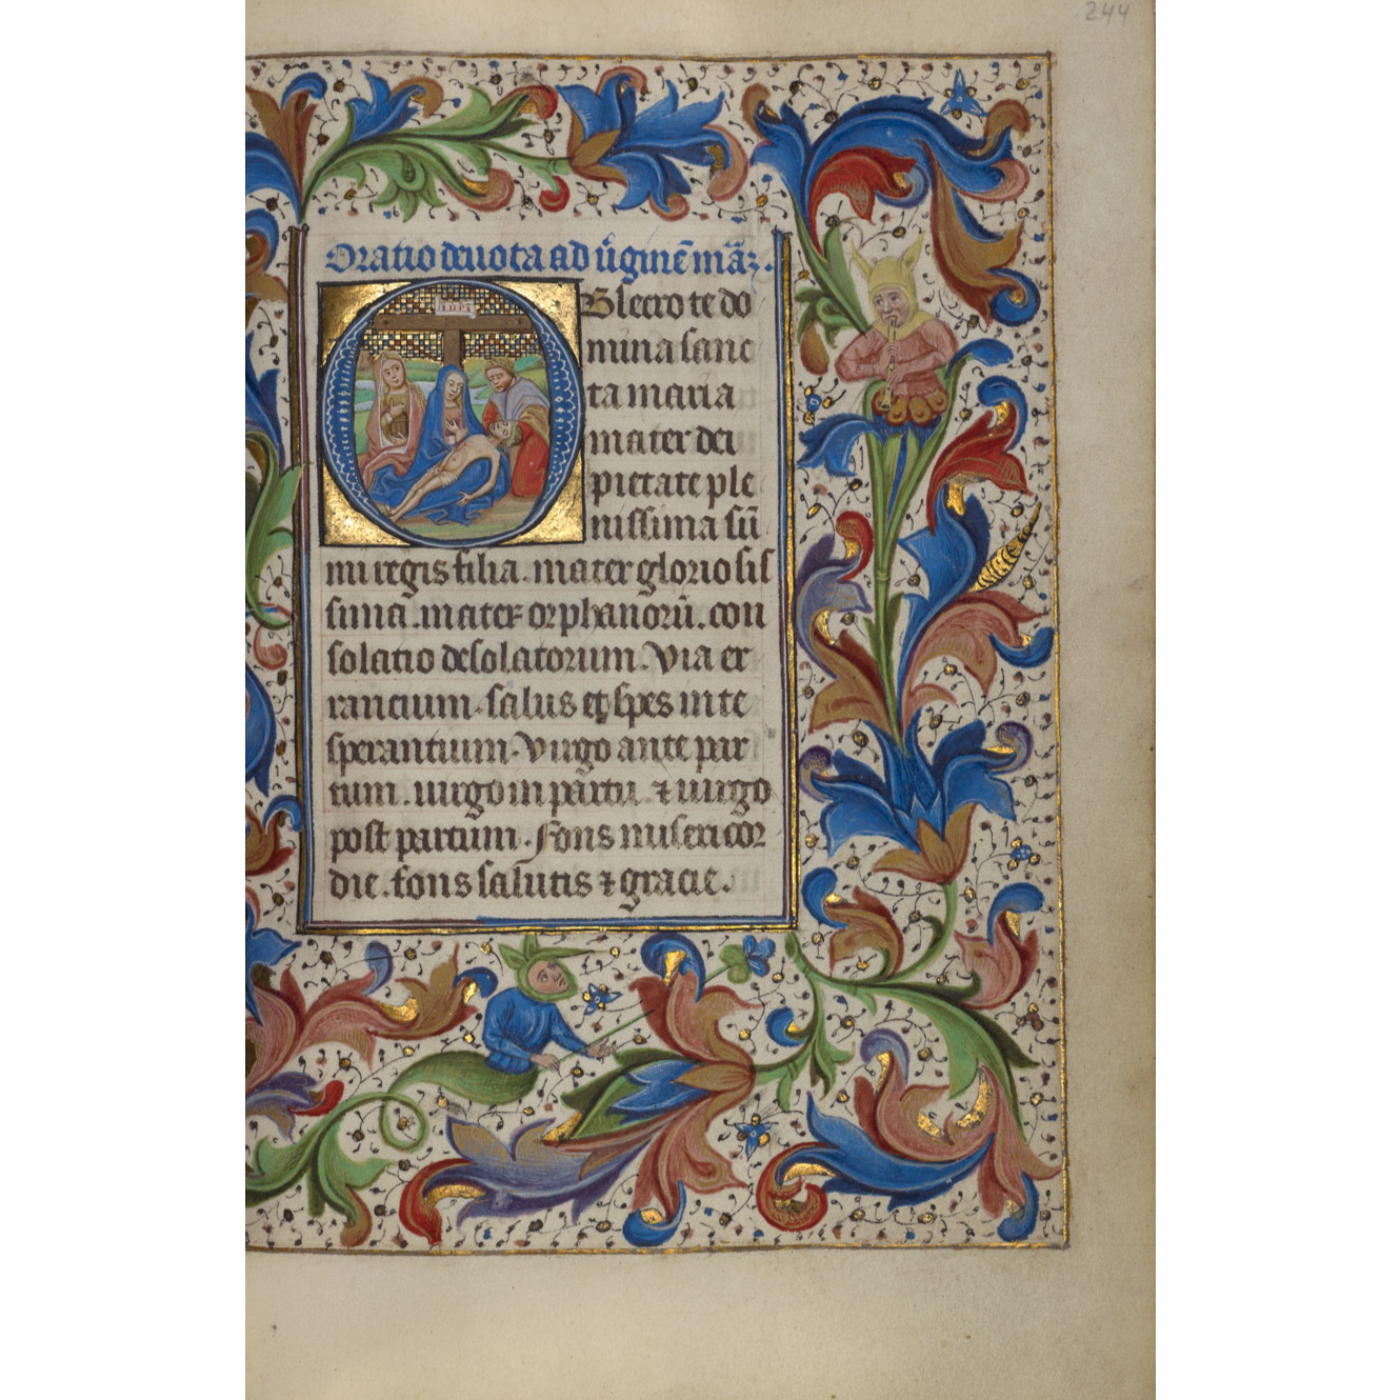 244
Oratio deuota ad v̉ginē mãz.
Obsecro te do
mina sanc
ta maria
mater dei
pietate ple
nissima sũ
mi regis filia. mater glorio sis
sima. mater orphanorũ. con
solatio desolatorum. Via er
rancium. salus et spes in te
sperantium. Virgo ante par
tum. uirgo in partu. ⁊ uirgo
post partum. Fons misericor
die. fons salutis ⁊ gracie.